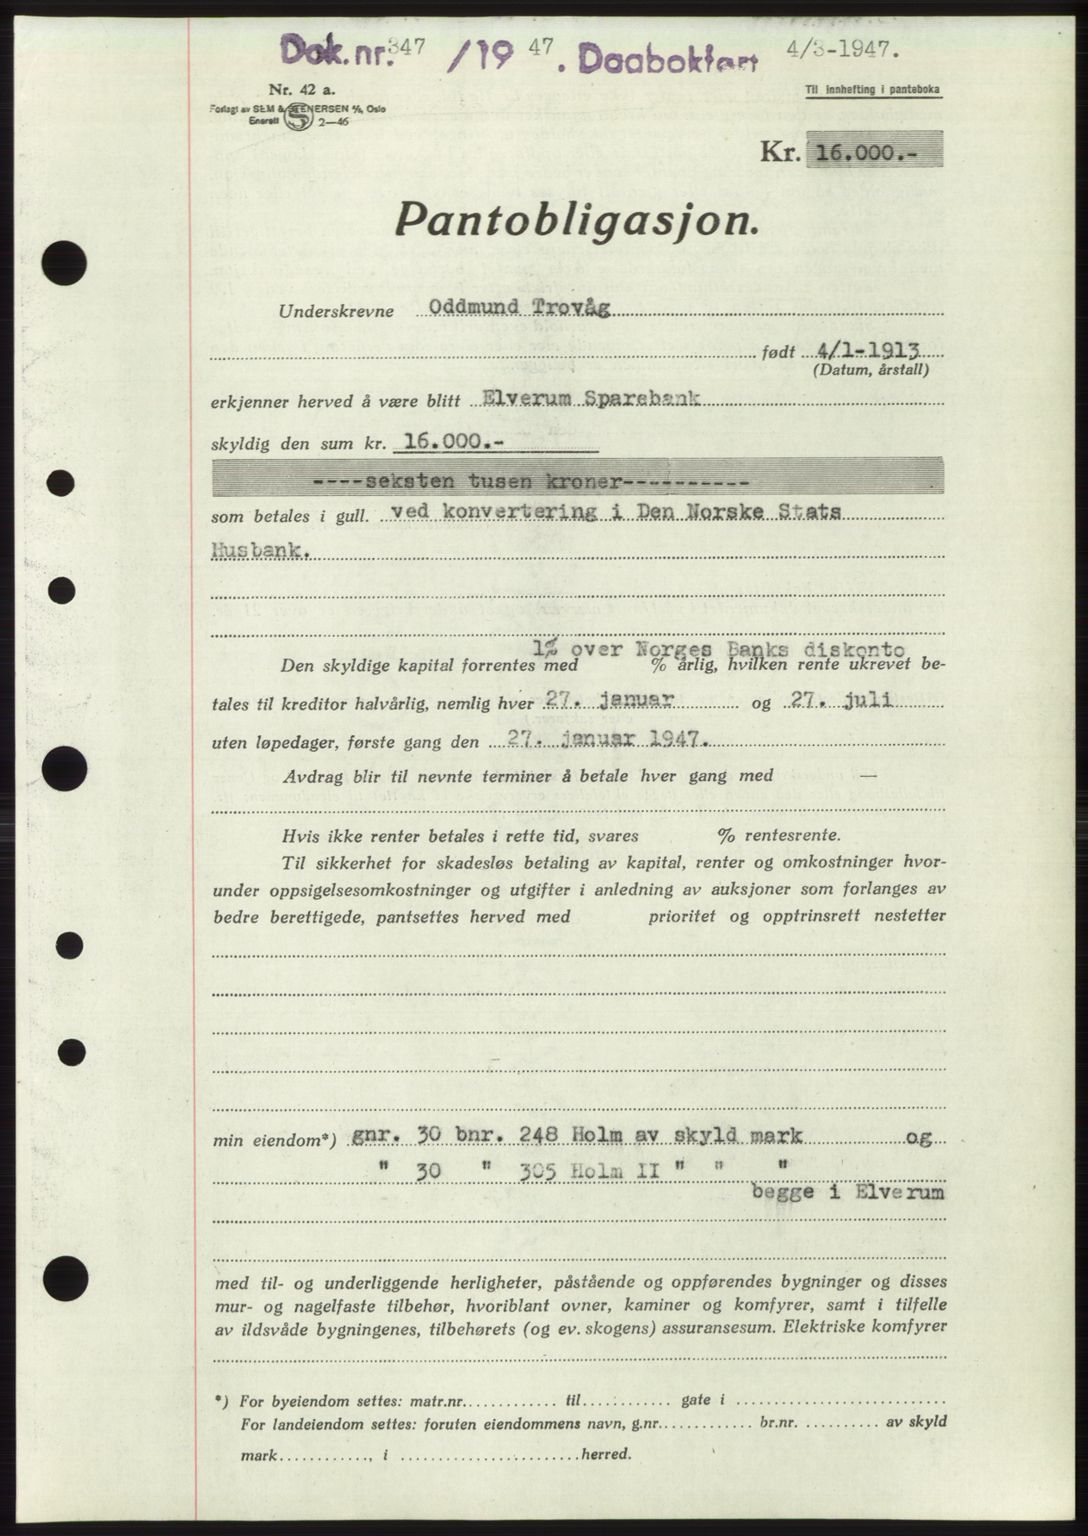 Dok.nr. 347 /19 47 . Daabokført 4/3-1947.
Nr. 42 a.
Til innhefting i panteboka
Forlagt av SEM & STENERSEN A/S, Oslo
Enerett 2—46
Kr. 16.000.-
Pantobligasjon.
Underskrevne Oddmund Trovåg
født 4/1-1913
(Datum, årstall)
erkjenner herved å være blitt Elverum Sparebank
skyldig den sum kr. 16.000.-
----seksten tusen kroner-----------
som betales i gull. ved konvertering i Den Norske Stats
Husbank.
1% over Norges Banks diskonto
Den skyldige kapital forrentes med % årlig, hvilken rente ukrevet be-
tales til kreditor halvårlig, nemlig hver 27. januar og 27. juli
uten løpedager, første gang den 27. januar 1947.
Avdrag blir til nevnte terminer å betale hver gang med —
Hvis ikke renter betales i rette tid, svares % rentesrente.
Til sikkerhet for skadesløs betaling av kapital, renter og omkostninger hvor-
under oppsigelsesomkostninger og utgifter i anledning av auksjoner som forlanges av
bedre berettigede, pantsettes herved med prioritet og opptrinsrett nestetter
min eiendom*) gnr. 30 bnr. 248 Holm av skyld mark og
" 30 " 305 Holm II " " "
begge i Elverum
med til- og underliggende herligheter, påstående og oppførendes bygninger og disses
mur- og nagelfaste tilbehør, hvoriblant ovner, kaminer og komfyrer, samt i tilfelle
av ildsvåde bygningenes, tilbehørets (og ev. skogens) assuransesum. Elektriske komfyrer
*) For byeiendom settes: matr.nr............. til............ gate i ............................
For landeiendom settes: foruten eiendommens navn, g.nr............. br.nr. .......... av skyld
mark............, i ........................herred.